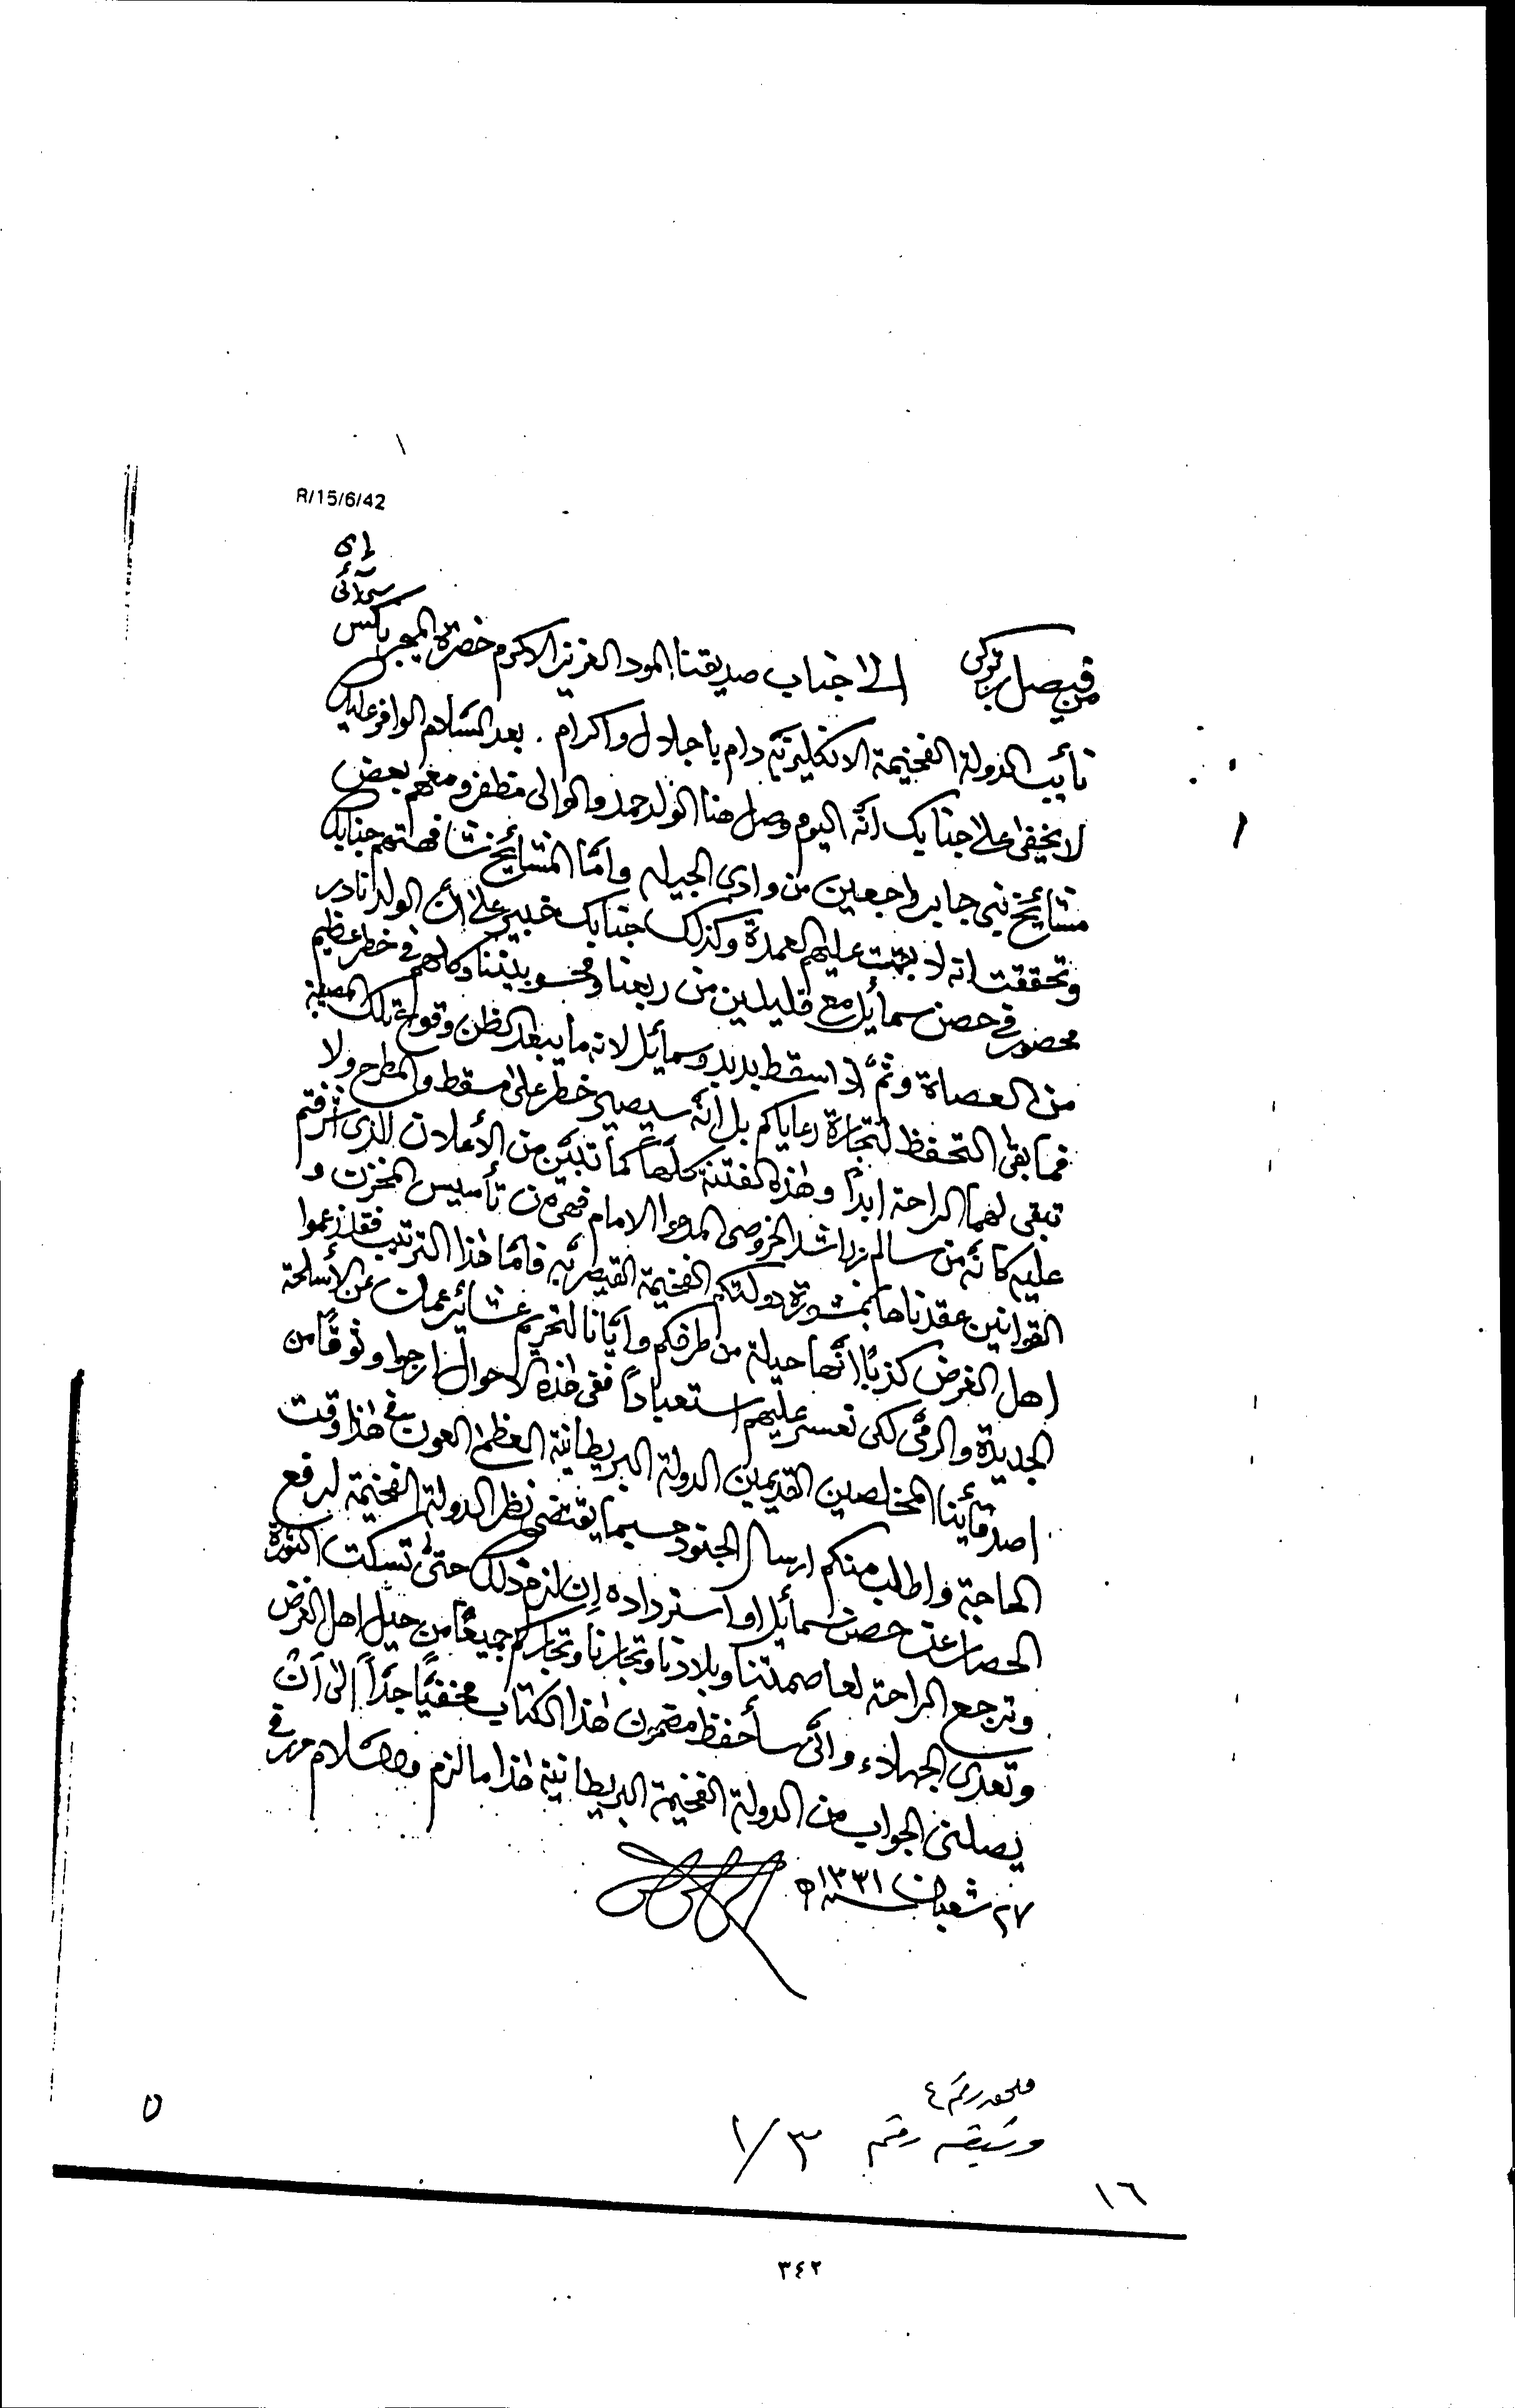 R/15/6/42
٥١
من فيصل بن تركي الى جناب صديقنا المود العزيز الاكرم حضرة الميجر ناكس سي آئي أي
نائب الدولة الفخيمة الانكليزيّة دام باجلال واكرام . بعد السّلام الوافر عليك
لا يخفى على جنابك انّه اليوم وصل هنا الولد حمد والوالي مظفر ومعهم بعض
مشائخ بني جابر راجعين من وادي الجيله وامّا المشائخ شافهتهم جنابك
وتحققت انه لا بقت عليهم العمدة وكذلك جنابك خبير على أن الولد نادر
محصور في حصن سمائل مع قليلين من ربعنا ومحسوبيننا وكلهم في خطر عظيم
من العصاة وثمّ اذا سقط بدبد وسمائل لانه ما يبعد الظن وقوع تلك المصيبة
فما بقى التحفظ لتجارة رعاياكم بل انّه سيصير خطر على مسقط والمطرح ولا
تبقى لهما الراحة ابدًا وهذه الفتنة كلّها كما تبيّن من الأعلان الذي اشرفتم
عليه كانّه من سالم بن راشد الخروصي المدعو الامام فهي من تأسيس المخزن و
القوانين عقدناها بمشورة دولتكم الفخيمة القيصريّه فامّا هذا الترتيب فقد زعموا
اهل الغرض كذبًا انّها حيلة من طرفكم وايّانا لتحريم عشائر عمان عن الأسلحة
الجديدة والرمي لكي تعسر عليهم استعبادًا ففي هذه الاحوال ارجوا وثوقًا من
اصدقائنا المخلصين القديمين الدولة البريطانية العظمى العون في هذا وقت
الحاجة واطلب منكم ارسال الجنود حسبما يقتضي نظر الدولة الفخيمة لدفع
الحصار عن حصن سمائل او استرداده إن لزم ذلك حتّى تسكت الثورة
وترجع الراحة لعاصمتنا وبلادنا وتجارنا وتجاركم جميعًا من حيل اهل الغرض
وتعدي الجهلاء وانّي سأحفظ مضمون هذا الكتاب مخفيًا جدًّا الى أن
يصلني الجواب من الدولة الفخيمة البريطانية هذا ما لزم والسّلام حرر في
٢٧ شعبان سنة ١٣٣١ه
ملحق رقم ٤
وثيقة رقم ٣/١
٥
١٦
٣٤٢